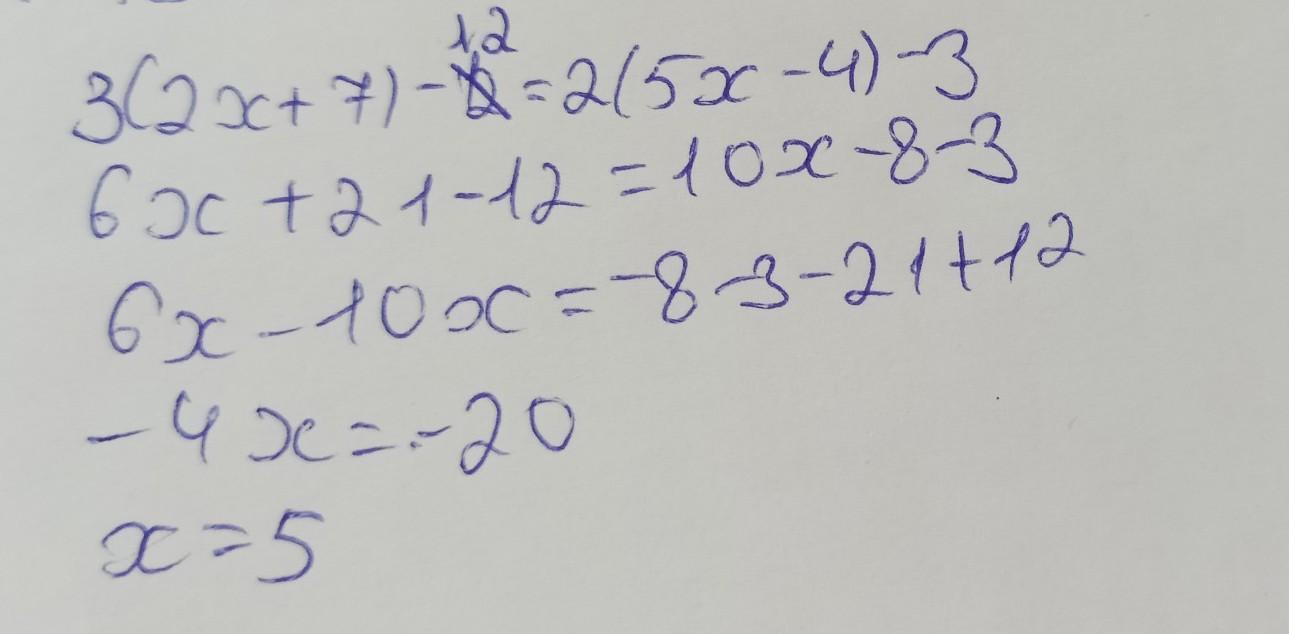 3(2x+7)-12=2(5x-4)-3
6x+21-12=10x-8-3
6x-10x=-8-3-21+12
-4x=-20
x=5